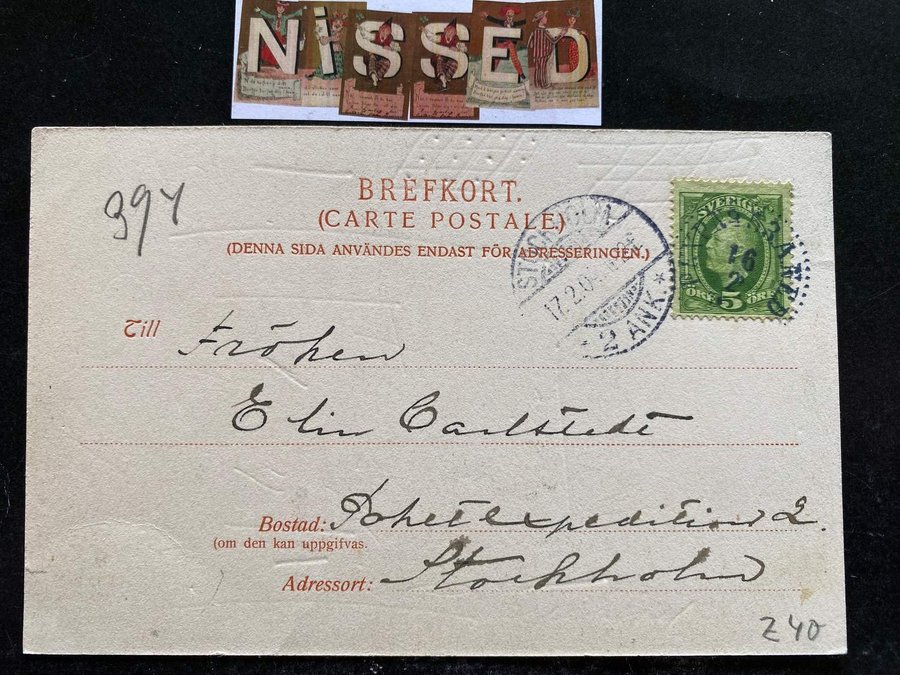 NiSSED
394
BREFKORT.
(CARTE POSTALE.)
(DENNA SIDA ANVÄNDES ENDAST FÖR ADRESSERINGEN.)
STOCKHOLM
17.2.0
2 ANK.
SVERIGE
16
2
ÖRE 5 ÖRE
Till
Fröken
Elin Carlstedt
Bostad: Paketexpedition 2.
(om den kan uppgifvas.
Adressort: Stockholm
240